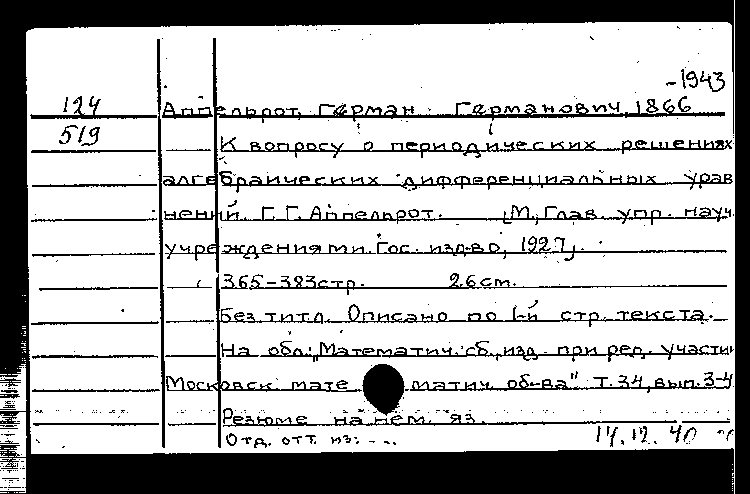 -1943
124 Аппельрот, Герман Германович, 1866
519 К вопросу о периодических решениях
алгебраических дифференциальных урав
нений. Г. Г. Аппельрот. [М., Глав. упр. науч.
учреждениями. Гос. изд-во, 1927].
365-383 стр. 26 cm.
Без титл. Описано по 1-й стр. текста.
На обл.: "Математич. сб., изд. при ред. участии
Московск. математич. об-ва" Т. 34, вып. 3-4
Резюме на нем. яз.
Отд. отт. из: -..
14.12.40